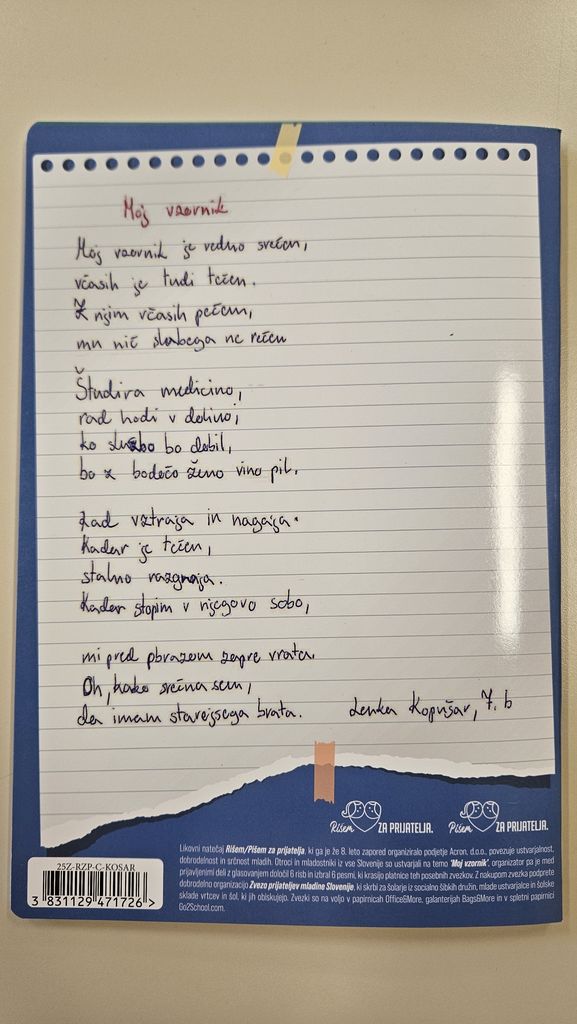 Moj vzornik
Moj vzornik je vedno srečen,
včasih je tudi tečen.
Z njim včasih pečem,
mu nič slabega ne rečem
Študira medicino,
rad hodi v dolino,
ko službo bo dobil,
bo z bodočo ženo vino pil.
Rad vztraja in nagaja.
Kadar je tečen,
stalno razgraja.
Kadar stopim v njegovo sobo,
mi pred obrazom zapre vrata.
Oh, kako srečna sem,
da imam starejšega brata.
Lenka Kopušar, 7. b
Rišem ZA PRIJATELJA.
Pišem ZA PRIJATELJA.
Likovni natečaj Rišem/Pišem za prijatelja, ki ga je že 8. leto zapored organiziralo podjetje Acron, d.o.o., povezuje ustvarjalnost,
dobrodelnost in srčnost mladih. Otroci in mladostniki iz vse Slovenije so ustvarjali na temo 'Moj vzornik', organizator pa je med
prijavljenimi deli z glasovanjem določil 6 risb in izbral 6 pesmi, ki krasijo platnice teh posebnih zvezkov. Z nakupom zvezka podprete
dobrodelno organizacijo Zvezo prijateljev mladine Slovenije, ki skrbi za šolarje iz socialno šibkih družin, mlade ustvarjalce in šolske
sklade vrtcev in šol, ki jih obiskujejo. Zvezki so na voljo v papirnicah Office&More, galanterijah Bags&More in v spletni papirnici
Go2School.com.
25Z-RZP-C-KOSAR
3 831129 471726 >